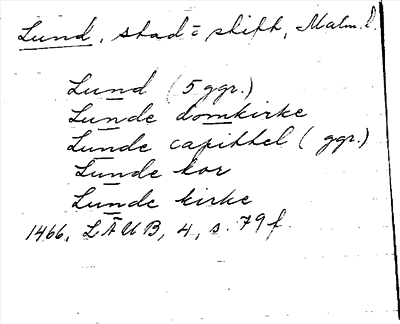 Lund, stad = stift, Malm. l.
Lund (5 ggr.)
Lunde domkirke
Lunde capittel ( ggr.)
Lunde kor
Lunde kirke
1466, LÄUB, 4, s. 79 f.